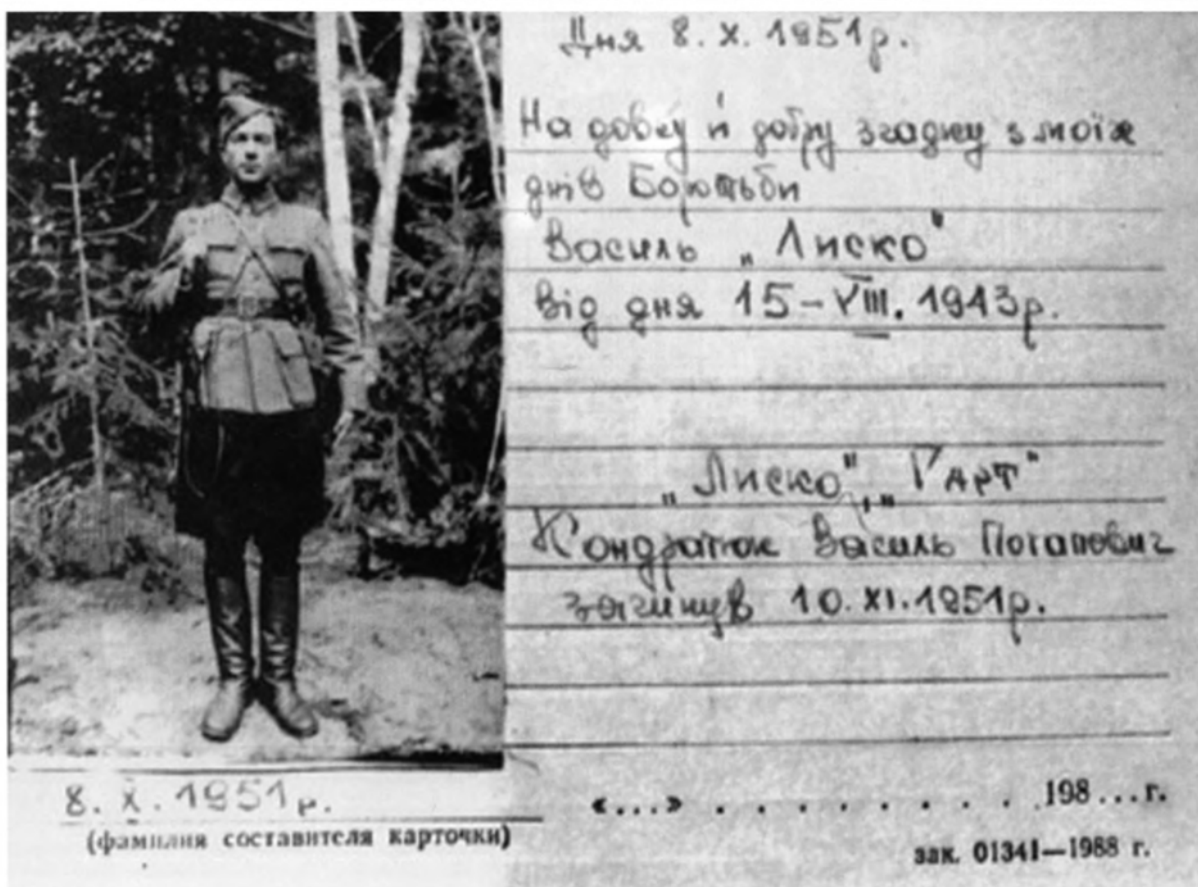 Дня 8. X. 1951р.
На довгу й добру згадку з моїх
днів Боротьби
Василь „Лиско"
від дня 15-VIII. 1943р.
„Лиско", „Гарт"
Кондратюк Василь Потапович
загинув 10. XI. 1951р.
8. X. 1951р.
(фамилия составителя карточки)
«...» . . . . . . . . . 198...г.
зак. 01341—1988 г.